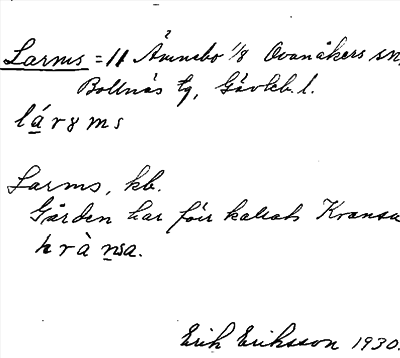 Larms = 11 Ämnebo 1/8 Ovanåkers sn,
Bollnäs tg, Gävleb. l.
lárəms
Larms, kb.
Gården har förr kallats Kransa
krànsa.
Erik Eriksson 1930.